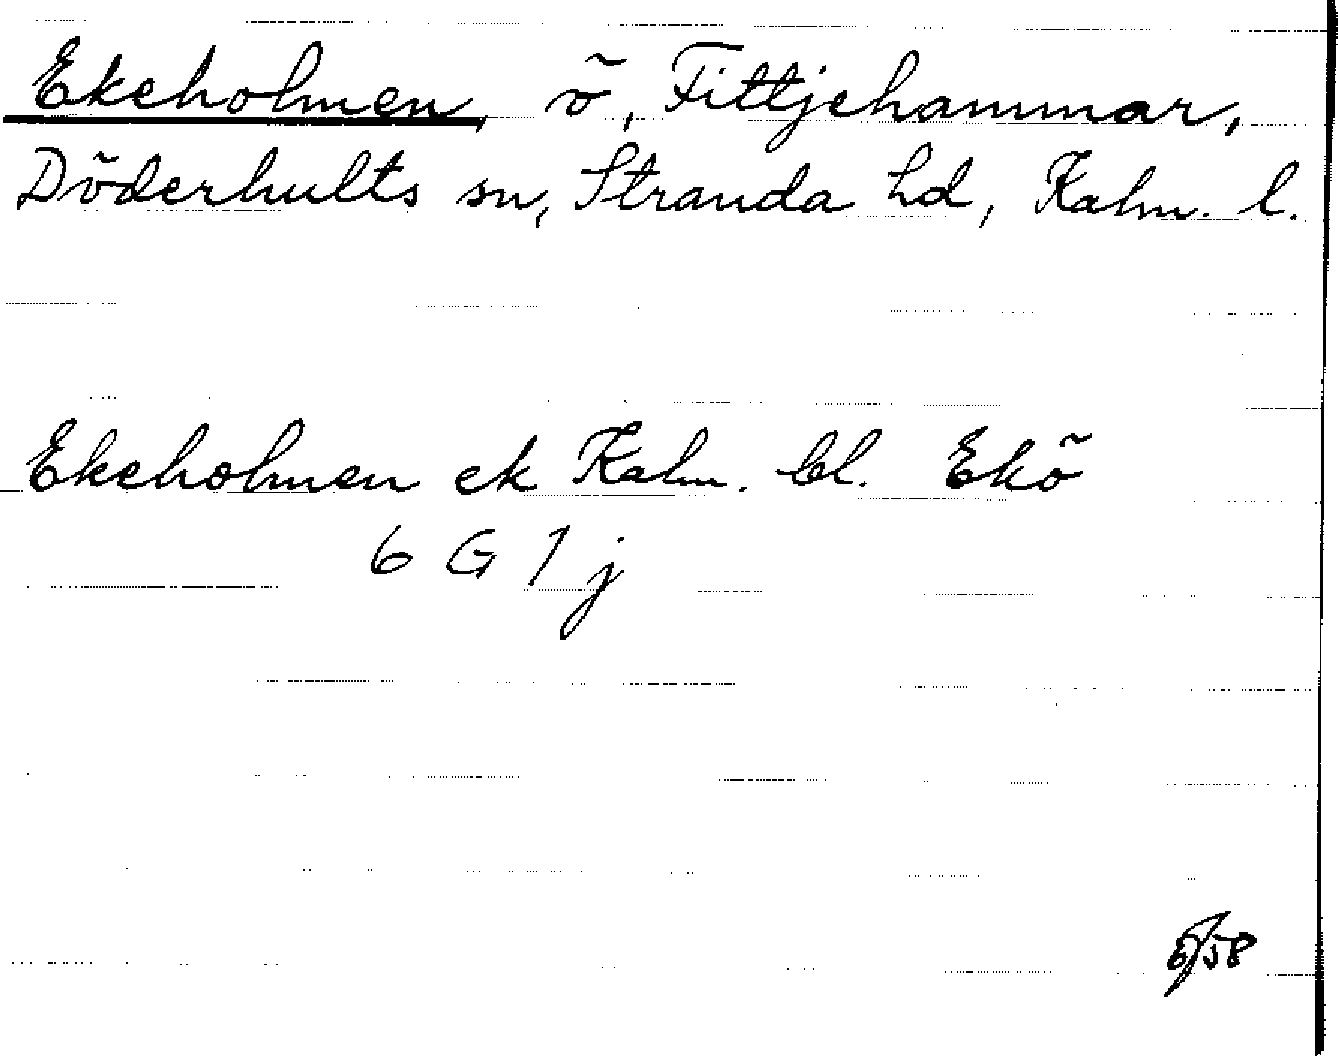 Ekeholmen, ö, Fittjehammar,
Döderhults sn, Stranda hd, Kalm. l.
Ekeholmen ek Kalm. bl. Ekö
6 G 1 j
6/58